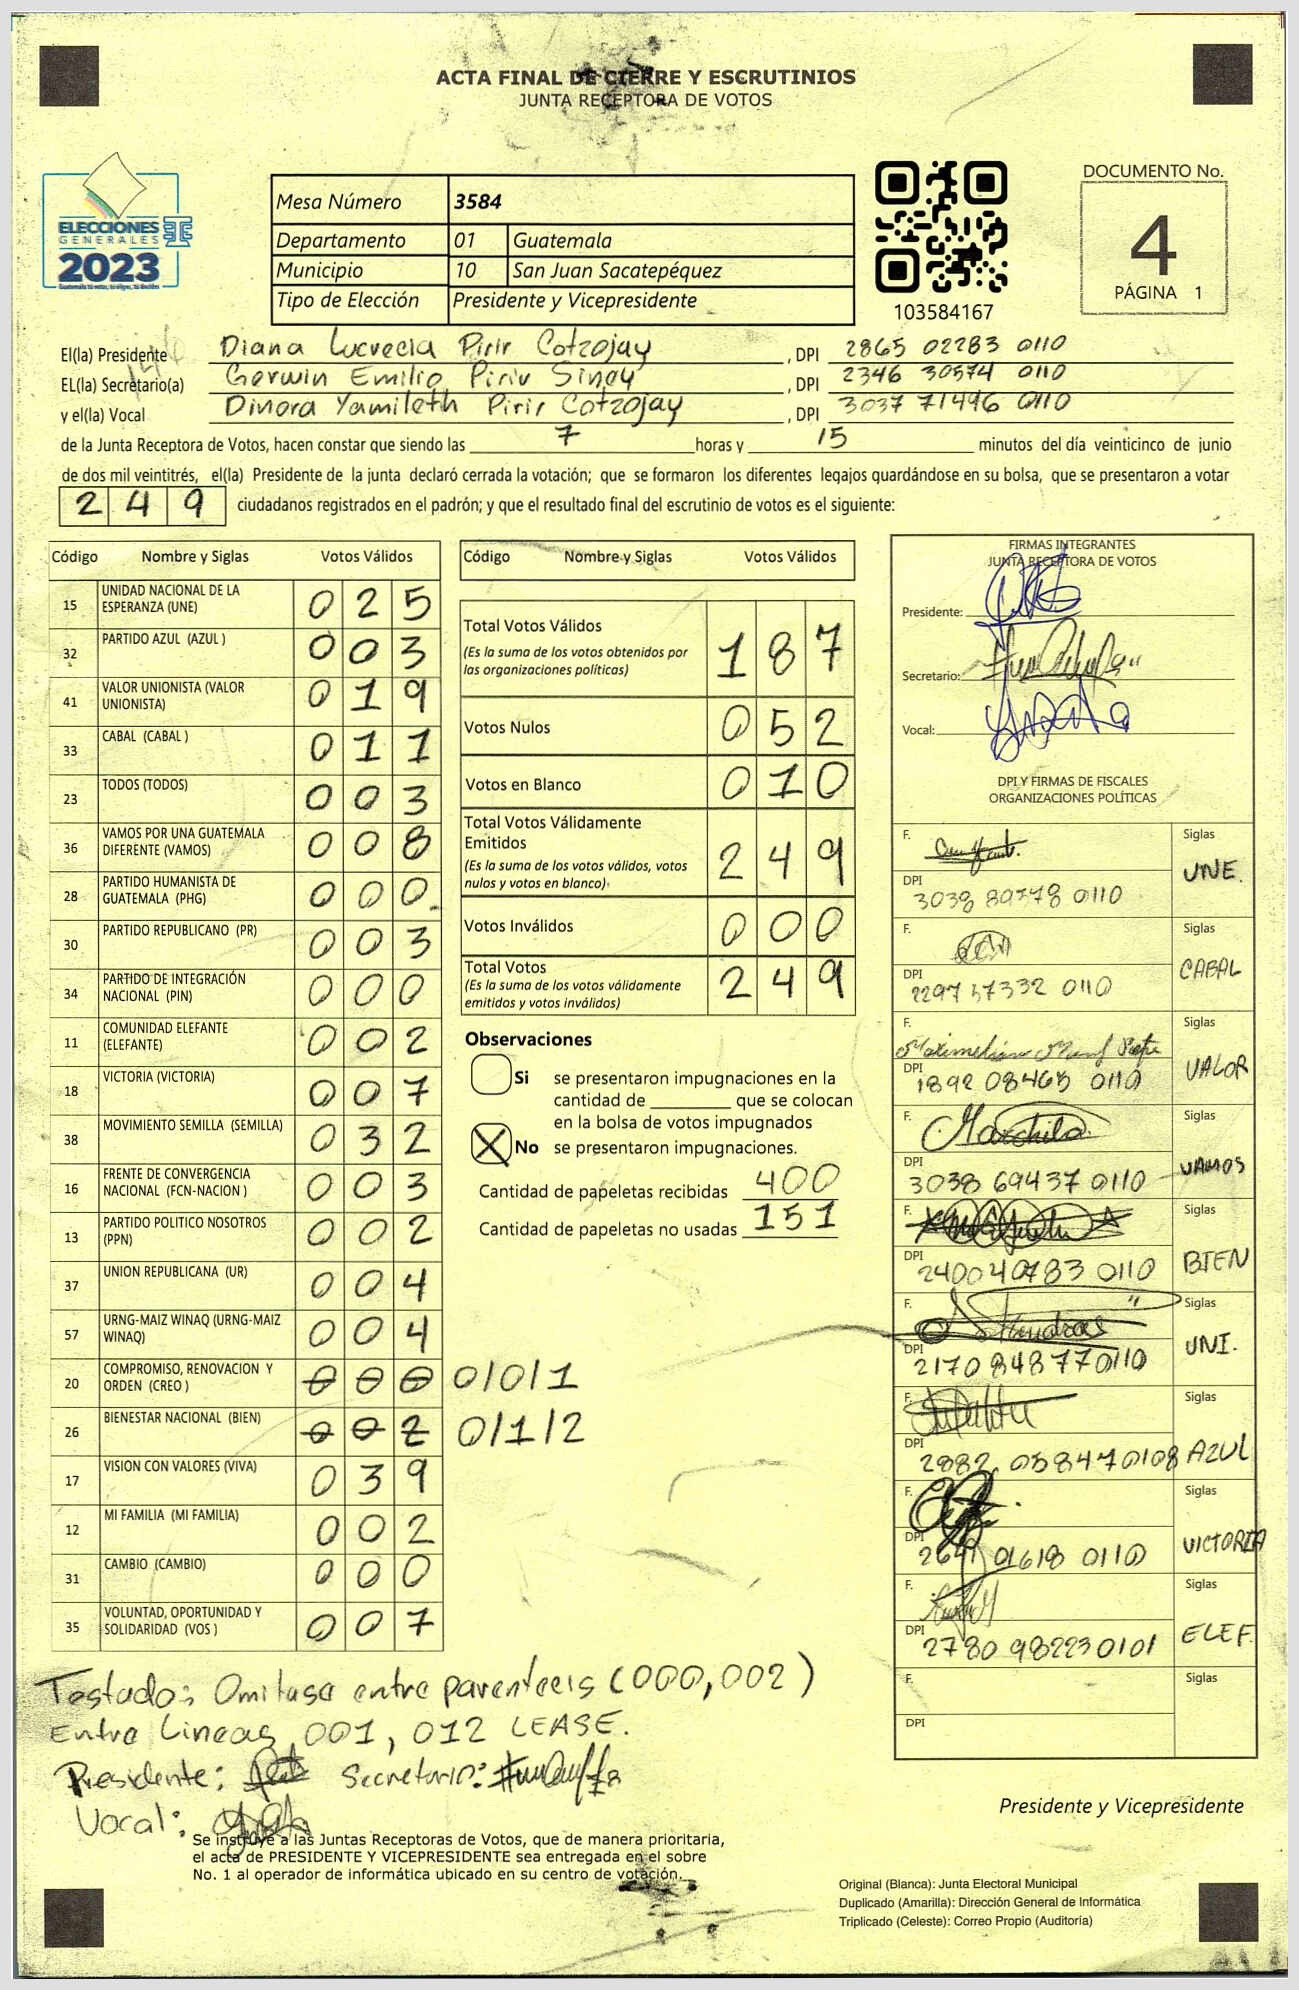 ACTA FINAL DE CIERRE Y ESCRUTINIOS
JUNTA RECEPTORA DE VOTOS
ELECCIONES
GENERALES
2023
Mesa Número 3584
Departamento 01 Guatemala
Municipio 10 San Juan Sacatepéquez
Tipo de Elección Presidente y Vicepresidente
103584167
DOCUMENTO No.
4
PÁGINA 1
El(la) Presidente Diana Lucrecia Pirir Cotzojay, DPI 2865 02283 0110
EL(la) Secretario(a) Gerwin Emilio Pirir Sinay, DPI 2346 30574 0110
y el(la) Vocal Dinora Yamileth Pirir Cotzojay, DPI 3037 71496 0110
de la Junta Receptora de Votos, hacen constar que siendo las 7 horas y 15 minutos del día veinticinco de junio
de dos mil veintitrés, el(la) Presidente de la junta declaró cerrada la votación; que se formaron los diferentes legajos guardándose en su bolsa, que se presentaron a votar
249 ciudadanos registrados en el padrón; y que el resultado final del escrutinio de votos es el siguiente:
Código Nombre y Siglas Votos Válidos
15 UNIDAD NACIONAL DE LA
ESPERANZA (UNE) 025
32 PARTIDO AZUL (AZUL ) 003
41 VALOR UNIONISTA (VALOR
UNIONISTA) 019
33 CABAL (CABAL ) 011
23 TODOS (TODOS) 003
36 VAMOS POR UNA GUATEMALA
DIFERENTE (VAMOS) 008
28 PARTIDO HUMANISTA DE
GUATEMALA (PHG) 000
30 PARTIDO REPUBLICANO (PR) 003
34 PARTIDO DE INTEGRACIÓN
NACIONAL (PIN) 000
11 COMUNIDAD ELEFANTE
(ELEFANTE) 002
18 VICTORIA (VICTORIA) 007
38 MOVIMIENTO SEMILLA (SEMILLA) 032
16 FRENTE DE CONVERGENCIA
NACIONAL (FCN-NACION ) 003
13 PARTIDO POLITICO NOSOTROS
(PPN) 002
37 UNION REPUBLICANA (UR) 004
57 URNG-MAIZ WINAQ (URNG-MAIZ
WINAQ) 004
20 COMPROMISO, RENOVACION Y
ORDEN (CREO ) 000 0/0/1
26 BIENESTAR NACIONAL (BIEN) 002 0/1/2
17 VISION CON VALORES (VIVA) 039
12 MI FAMILIA (MI FAMILIA) 002
31 CAMBIO (CAMBIO) 000
35 VOLUNTAD, OPORTUNIDAD Y
SOLIDARIDAD (VOS ) 007
Código Nombre y Siglas Votos Válidos
Total Votos Válidos
(Es la suma de los votos obtenidos por
las organizaciones políticas) 187
Votos Nulos 052
Votos en Blanco 010
Total Votos Válidamente
Emitidos
(Es la suma de los votos válidos, votos
nulos y votos en blanco) 249
Votos Inválidos 000
Total Votos
(Es la suma de los votos válidamente
emitidos y votos inválidos) 249
Observaciones
Si se presentaron impugnaciones en la
cantidad de ________ que se colocan
en la bolsa de votos impugnados
X No se presentaron impugnaciones.
Cantidad de papeletas recibidas 400
Cantidad de papeletas no usadas 151
FIRMAS INTEGRANTES
JUNTA RECEPTORA DE VOTOS
Presidente:
Secretario:
Vocal:
DPI Y FIRMAS DE FISCALES
ORGANIZACIONES POLÍTICAS
F. Siglas
UNE.
DPI
3038 89778 0110
F. Siglas
CABAL
DPI
2297 57332 0110
F. Siglas
VALOR
DPI
1892 08465 0110
F. Siglas
VAMOS
DPI
3038 69437 0110
F. Siglas
BIEN
DPI
2400 40783 0110
F. Siglas
UNI.
DPI
2170 84877 0110
F. Siglas
AZUL
DPI
2882 05847 0108
F. Siglas
VICTORIA
DPI
2641 01618 0110
F. Siglas
ELEF.
DPI
2780 98223 0101
F. Siglas
DPI
Testado: Omitase entre parenteeis (000,002)
Entre Lineas 001, 012 LEASE.
Presidente: Secretario:
Vocal:
Presidente y Vicepresidente
Se instruye a las Juntas Receptoras de Votos, que de manera prioritaria,
el acta de PRESIDENTE Y VICEPRESIDENTE sea entregada en el sobre
No. 1 al operador de informática ubicado en su centro de votación.
Original (Blanca): Junta Electoral Municipal
Duplicado (Amarilla): Dirección General de Informática
Triplicado (Celeste): Correo Propio (Auditoría)